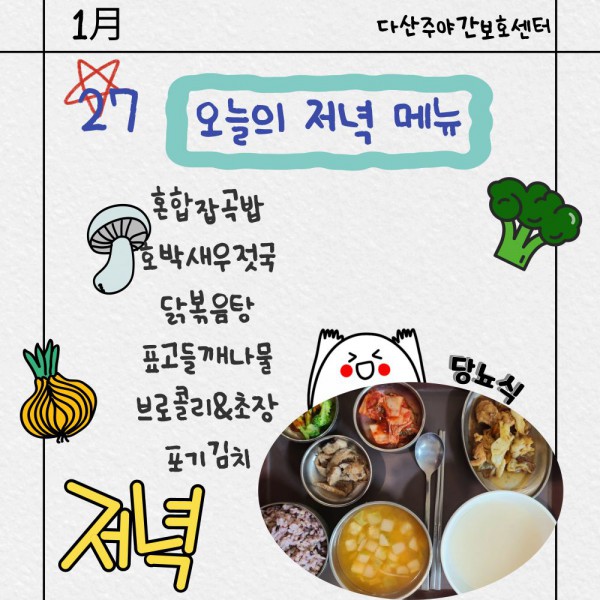 1月
다산주야간보호센터
27
오늘의 저녁 메뉴
혼합잡곡밥
호박새우젓국
닭볶음탕
표고들깨나물
브로콜리&초장
포기김치
당뇨식
저녁